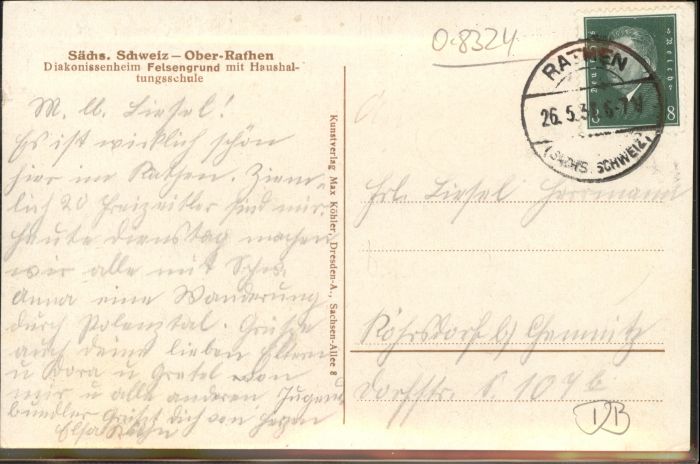 0.8324
Sächs. Schweiz — Ober-Rathen
Diakonissenheim Felsengrund mit Haushal-
tungsschule
M. lb. Liesel!
Es ist wirklich schön
hier im Rathen. Ziem-
lich 20 Freizeitler sind wir.
Heute Dienstag machen
wir alle mit Schw.
Anna eine Wanderung
durch Polenztal. Grüße
auch deine lieben Eltern
u Dora u Gretel von
mir u alle anderen Jugend
bündler Grüßt dich von Herzen
Elsa
Kunstverlag Max Köhler, Dresden-A., Sachsen-Allee 8
Deutsches Reich
8 8
RATHEN
26. 5. 3 6-7 V
(SÄCHS. SCHWEIZ)
Frl. Liesel Herrmann
Röhrsdorf b/ Chemnitz
Dorfstr. 107b
DB